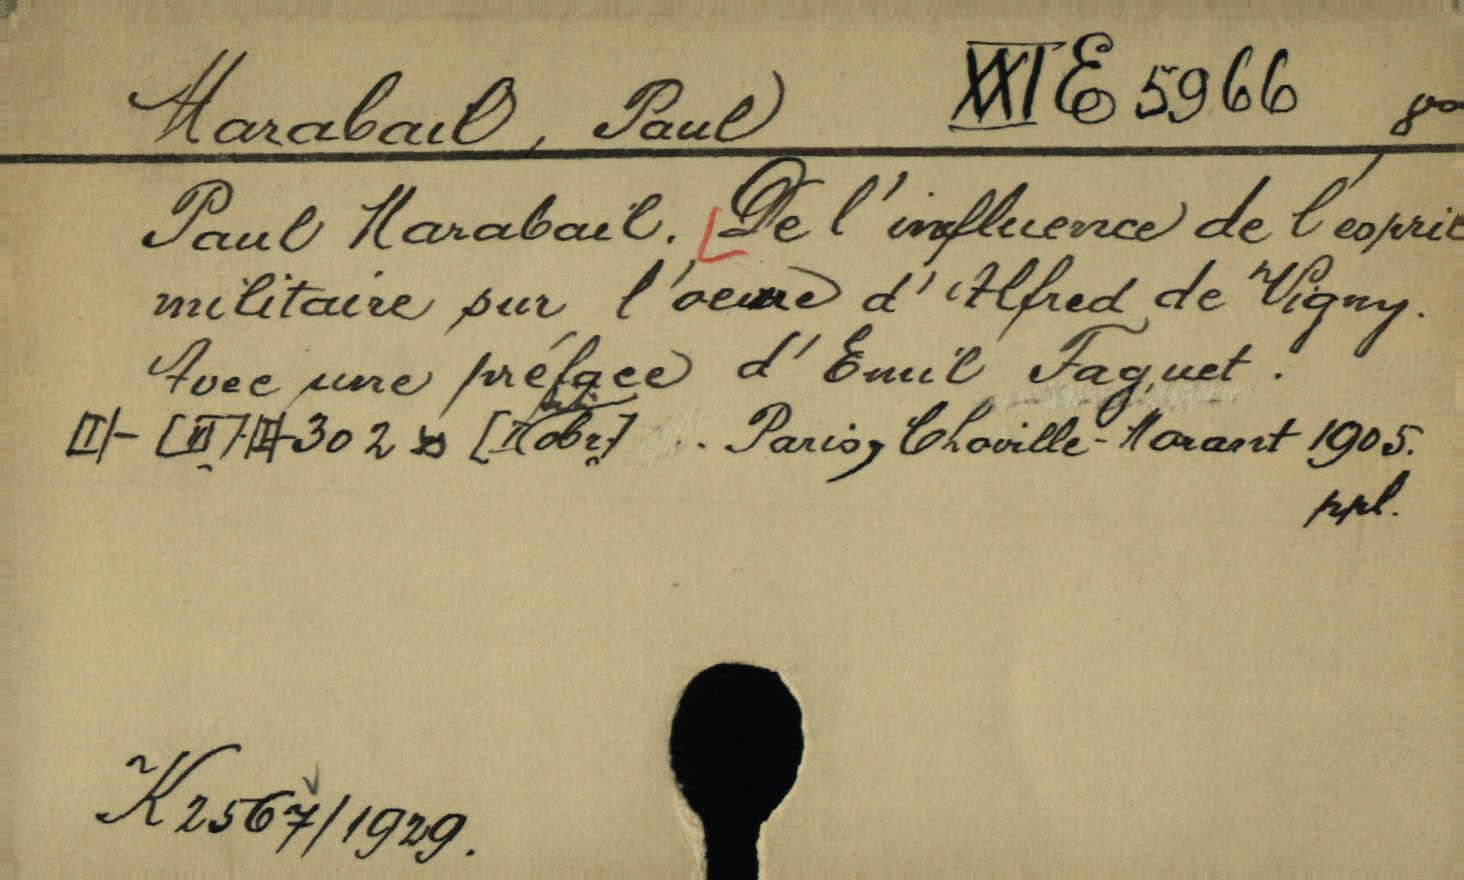 Marabail, Paul XXI E 5966 8°
Paul Marabail. De l'influence de l'esprit
militaire sur l'oeuvre d'Alfred de Vigny.
Avec une préface d'Emil Faguet.
302 Paris, Choville-Morant 1905.
ppl.
K 2567/1929.